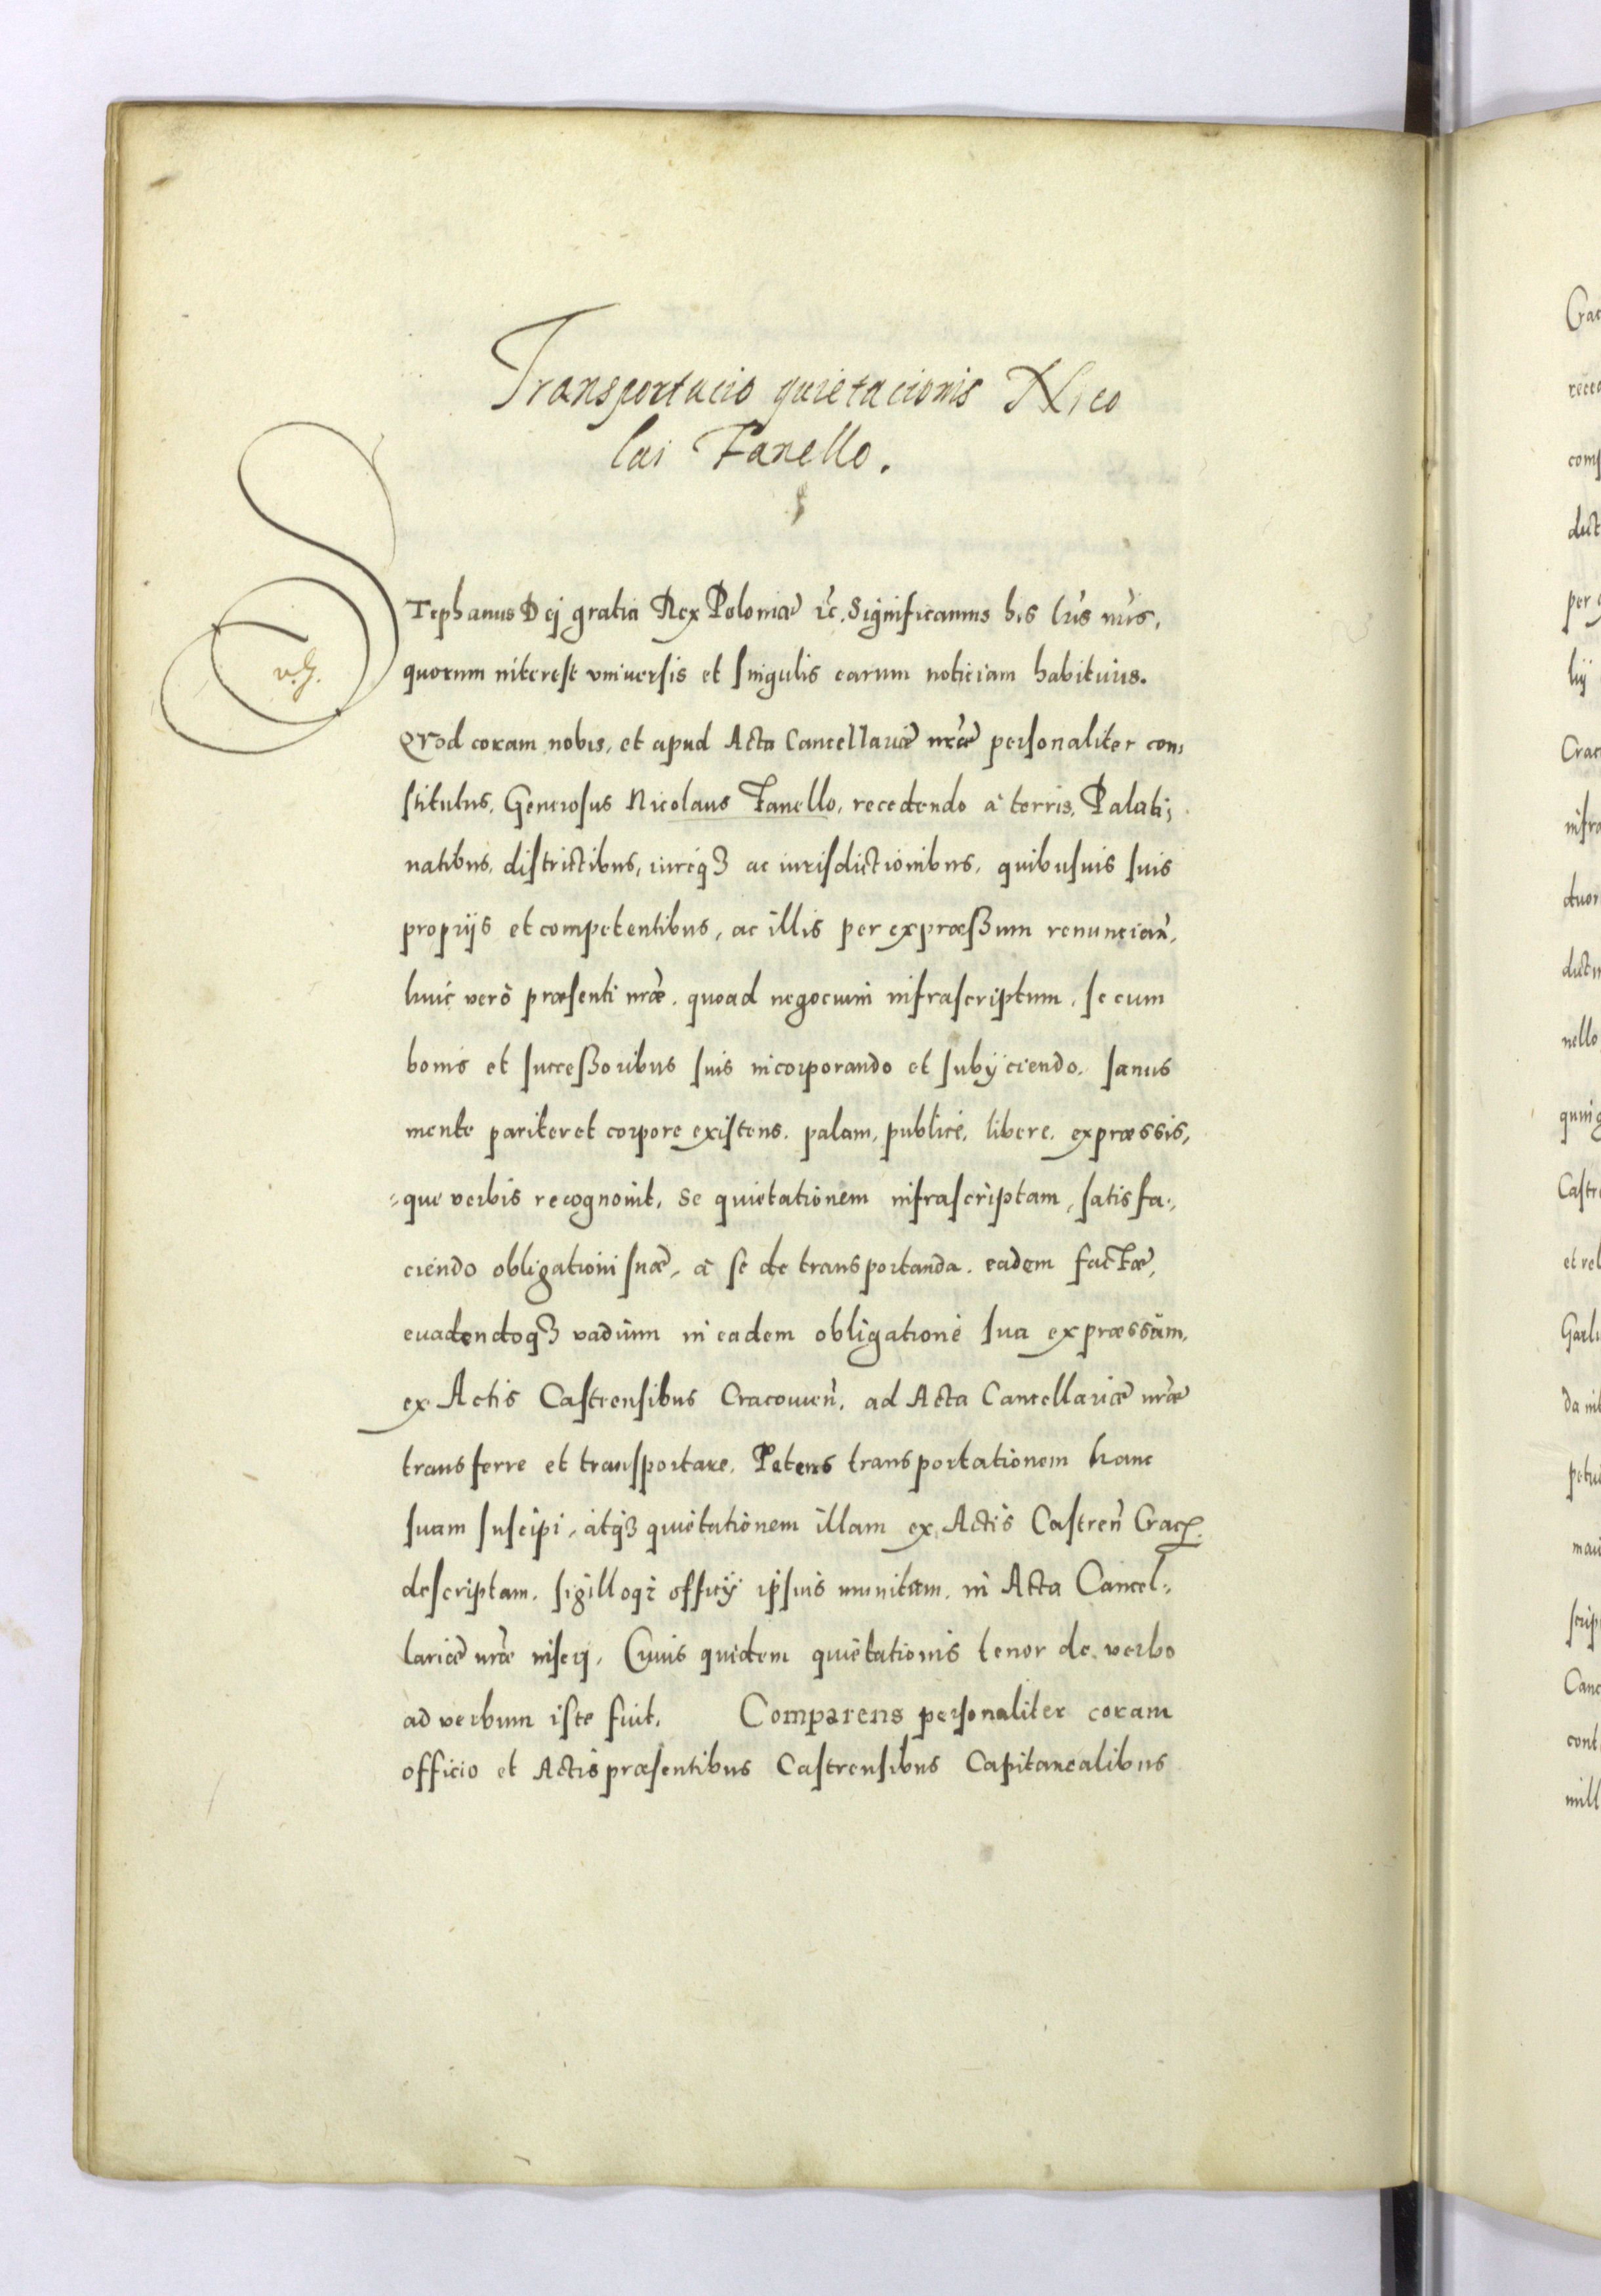 Transportacio quietacionis Nico
lai Fanello.
STephanus Dej gratia Rex Poloniæ &c. Significamus his lr̃is nr̃is,
quorum interest vniuersis et singulis earum noticiam habituris.
QVod coram nobis, et apud Acta Cancellariæ nr̃æ personaliter con,
stitutus, Generosus Nicolaus Fanello, recedendo à terris, Palati,
natibus, districtibus, iureq3 ac iurisdictionibus, quibusuis suis
proprijs et competentibus, ac illis per expræßum renuncian̄,
huic verò præsenti nr̃æ, quoad negocium infrascriptum, se cum
bonis et succeßoribus suis incorporando et subijciendo, sanus
mente pariter et corpore existens, palam, publicè, libere, expræssis,
=que verbis recognouit, Se quietationem infrascriptam, satisfa,,
ciendo obligationi suæ, à se de transportanda eadem factæ,
euadendoq3 vadium in eadem obligatione sua expræssum,
ex Actis Castrensibus Cracouien̄, ad Acta Cancellariæ nr̃æ
transferre et transportare, Petens transportationem hanc
suam suscipi, atq3 quietationem illam ex Actis Castren̄ Crac̄.
descriptam, sigilloq3 officij ipsius munitam, in Acta Cancel,,
lariæ nr̃æ inseri, Cuius quidem quietationis tenor de verbo
ad verbum iste fuit, Comparens personaliter coram
officio et Actis præsentibus Castrensibus Capitanealibus
Crac
nello
Castre
et rel
Canc
cont
mill